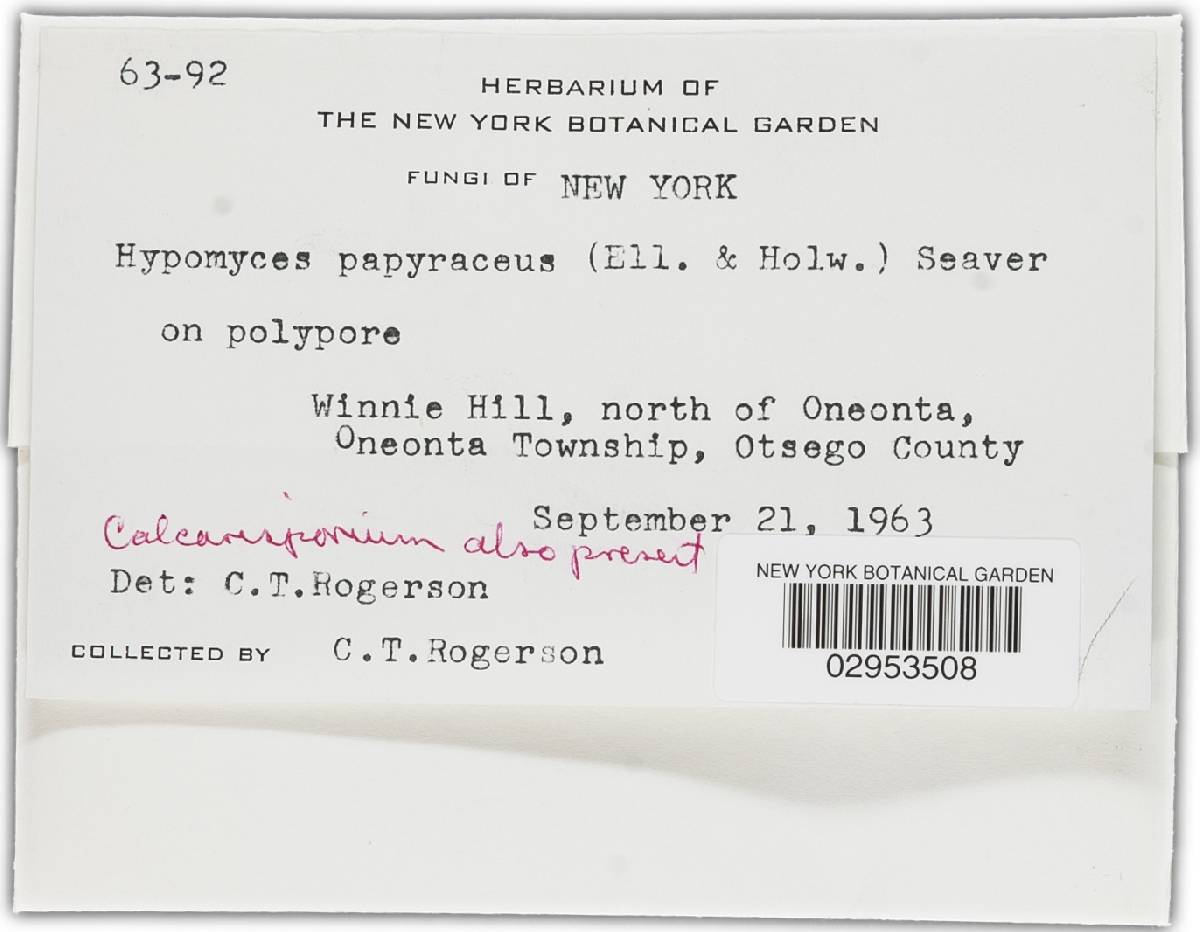 63-92
HERBARIUM OF
THE NEW YORK BOTANICAL GARDEN
FUNGI OF NEW YORK
Hypomyces papyraceus (Ell. & Holw.) Seaver
on polypore
Winnie Hill, north of Oneonta,
Oneonta Township, Otsego County
September 21, 1963
Calcarisporium also present
Det: C.T.Rogerson
COLLECTED BY C.T.Rogerson
NEW YORK BOTANICAL GARDEN
02953508